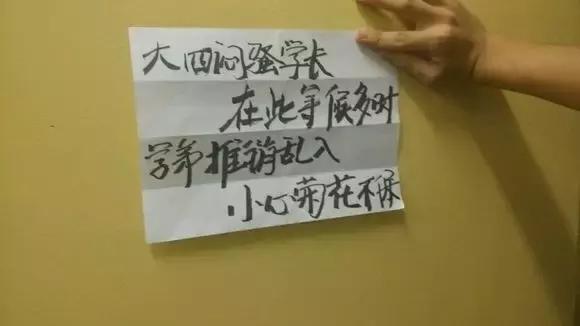 大四闷骚学长
在此等候多时
学弟推销乱入
小心菊花不保